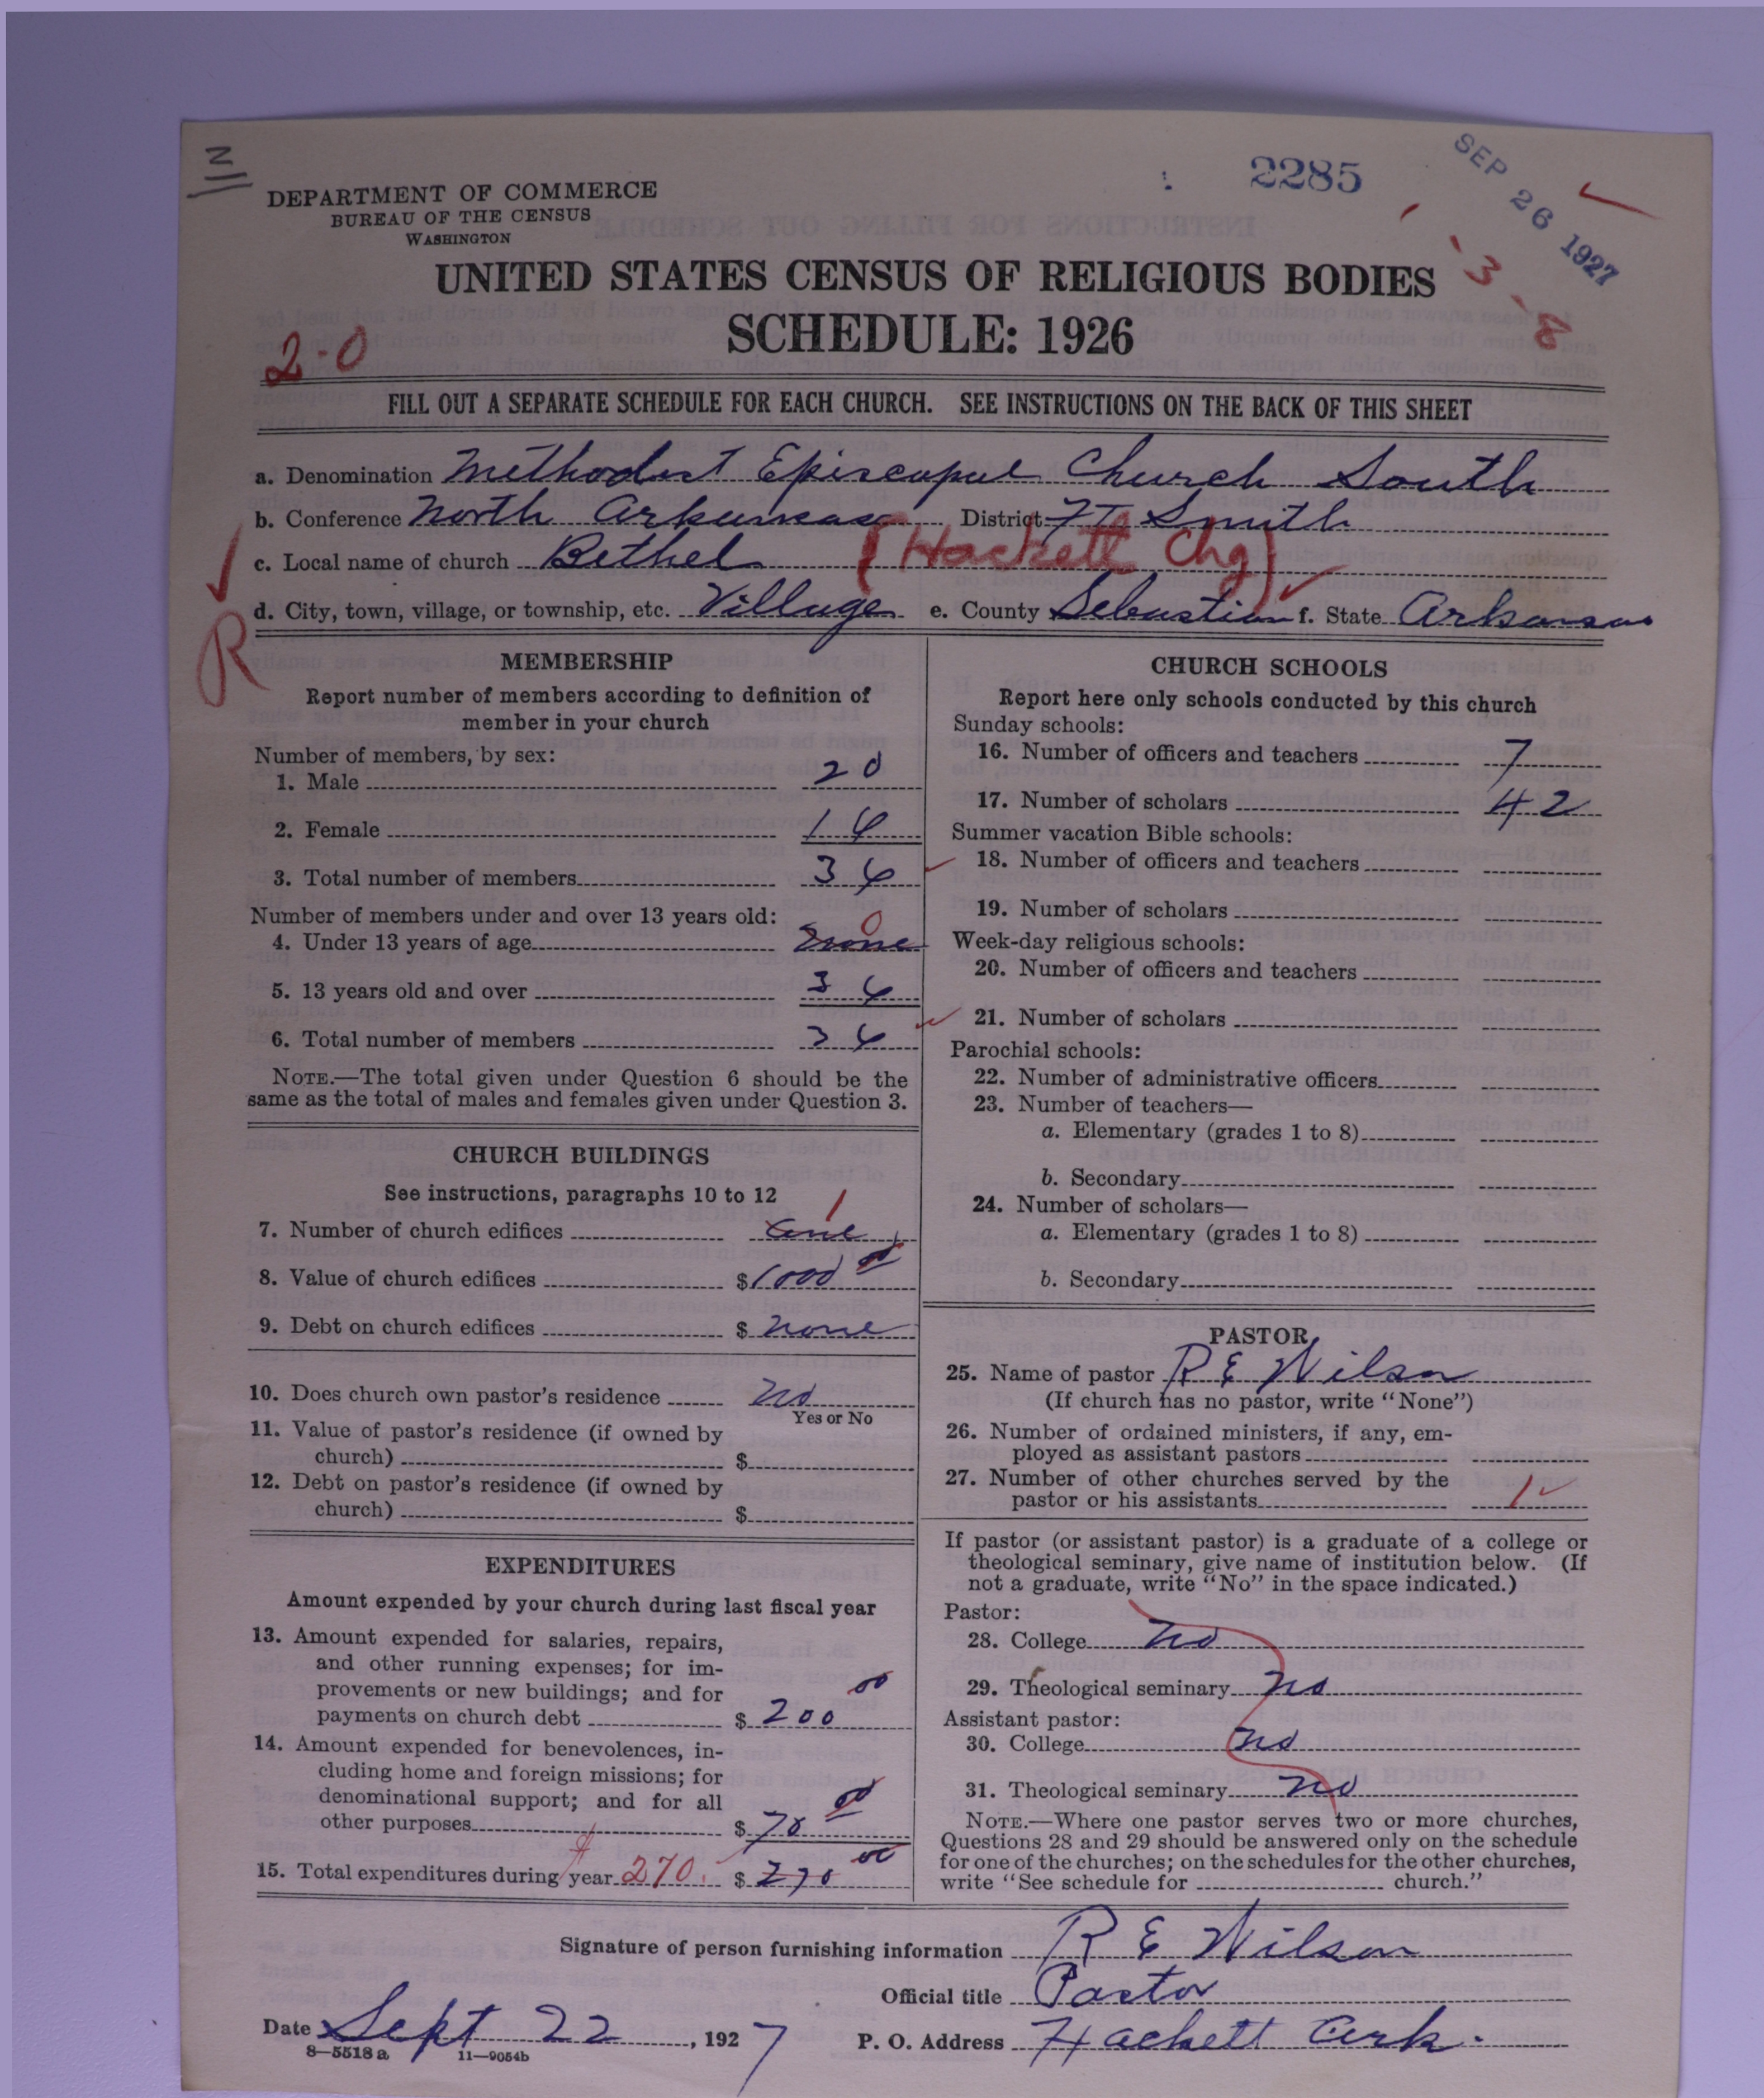 N
2285
SEP 26 1927
3-8
DEPARTMENT OF COMMERCE
BUREAU OF THE CENSUS
WASHINGTON
UNITED STATES CENSUS OF RELIGIOUS BODIES
SCHEDULE: 1926
2-0
FILL OUT A SEPARATE SCHEDULE FOR EACH CHURCH. SEE INSTRUCTIONS ON THE BACK OF THIS SHEET
a. Denomination Methodist Episcopal Church South
b. Conference North Arkansas District Ft Smith
c. Local name of church Bethel (Hackett Chg)
d. City, town, village, or township, etc. Village e. County Sebastian f. State Arkansas
R
MEMBERSHIP
Report number of members according to definition of
member in your church
Number of members, by sex:
1. Male 20
2. Female 14
3. Total number of members 34
Number of members under and over 13 years old:
4. Under 13 years of age None 0
5. 13 years old and over 34
6. Total number of members 34
NOTE.—The total given under Question 6 should be the
same as the total of males and females given under Question 3.
CHURCH BUILDINGS
See instructions, paragraphs 10 to 12
7. Number of church edifices one 1
8. Value of church edifices $1000 00
9. Debt on church edifices $ none
10. Does church own pastor's residence no
Yes or No
11. Value of pastor's residence (if owned by
church) $
12. Debt on pastor's residence (if owned by
church) $
EXPENDITURES
Amount expended by your church during last fiscal year
13. Amount expended for salaries, repairs,
and other running expenses; for im-
provements or new buildings; and for
payments on church debt $ 200 00
14. Amount expended for benevolences, in-
cluding home and foreign missions; for
denominational support; and for all
other purposes $ 70 00
15. Total expenditures during year $ 270. $ 270 00
CHURCH SCHOOLS
Report here only schools conducted by this church
Sunday schools:
16. Number of officers and teachers 7
17. Number of scholars 42
Summer vacation Bible schools:
18. Number of officers and teachers
19. Number of scholars
Week-day religious schools:
20. Number of officers and teachers
21. Number of scholars
Parochial schools:
22. Number of administrative officers
23. Number of teachers—
a. Elementary (grades 1 to 8)
b. Secondary
24. Number of scholars—
a. Elementary (grades 1 to 8)
b. Secondary
PASTOR
25. Name of pastor R E Wilson
(If church has no pastor, write "None")
26. Number of ordained ministers, if any, em-
ployed as assistant pastors
27. Number of other churches served by the
pastor or his assistants 1
If pastor (or assistant pastor) is a graduate of a college or
theological seminary, give name of institution below. (If
not a graduate, write "No" in the space indicated.)
Pastor:
28. College no
29. Theological seminary no
Assistant pastor:
30. College no
31. Theological seminary no
NOTE.—Where one pastor serves two or more churches,
Questions 28 and 29 should be answered only on the schedule
for one of the churches; on the schedules for the other churches,
write "See schedule for church."
Signature of person furnishing information R E Wilson
Official title Pastor
Date Sept 22, 1927 P. O. Address Hackett Ark.
8—5518 a 11—9054b